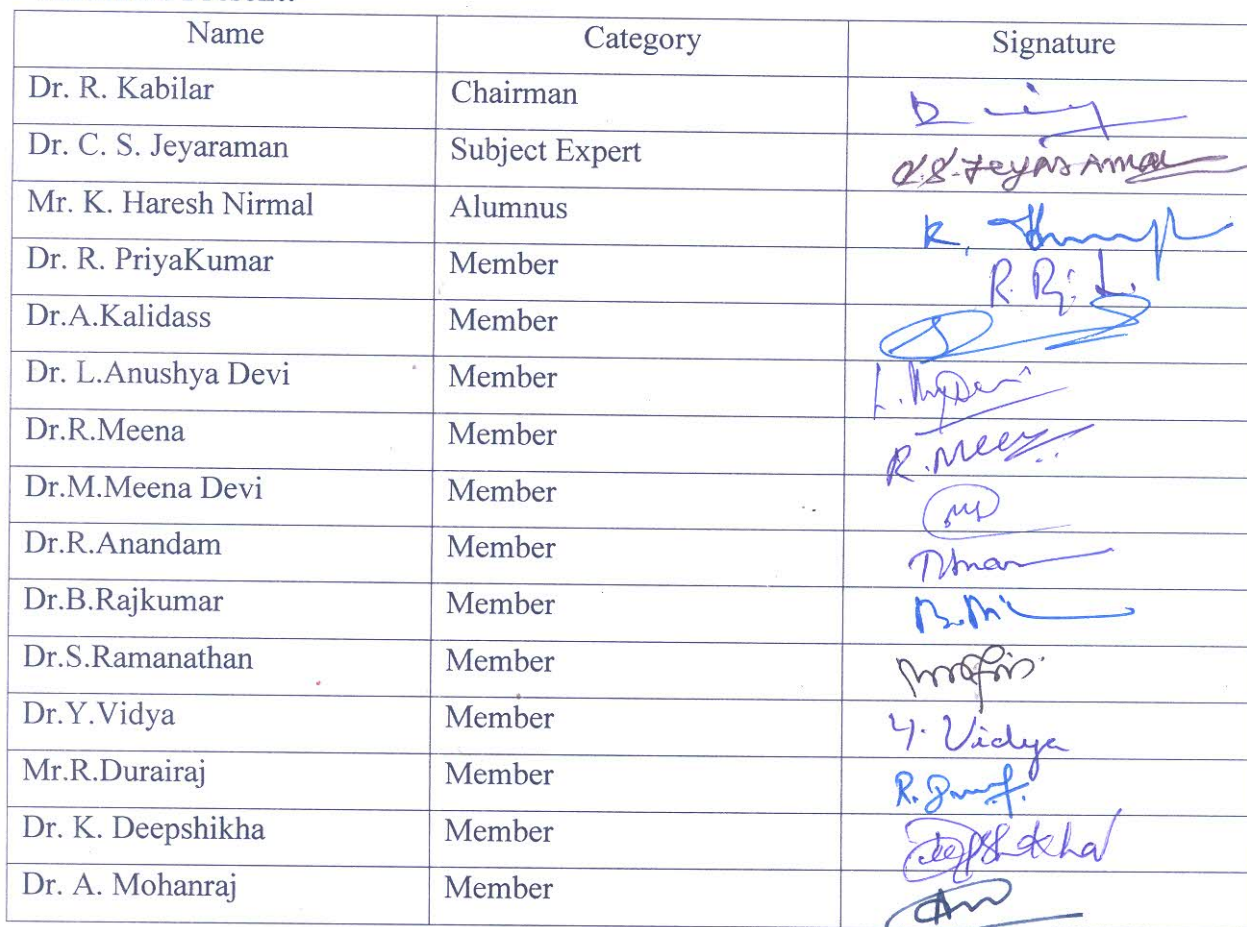 Name Category Signature
Dr. R. Kabilar Chairman
Dr. C. S. Jeyaraman Subject Expert C.S. Jeyaraman
Mr. K. Haresh Nirmal Alumnus K.
Dr. R. PriyaKumar Member R.
Dr.A.Kalidass Member
Dr. L.Anushya Devi Member L.
Dr.R.Meena Member R. Meena
Dr.M.Meena Devi Member
Dr.R.Anandam Member
Dr.B.Rajkumar Member
Dr.S.Ramanathan Member
Dr.Y.Vidya Member Y. Vidya
Mr.R.Durairaj Member R.
Dr. K. Deepshikha Member Deepshikha
Dr. A. Mohanraj Member